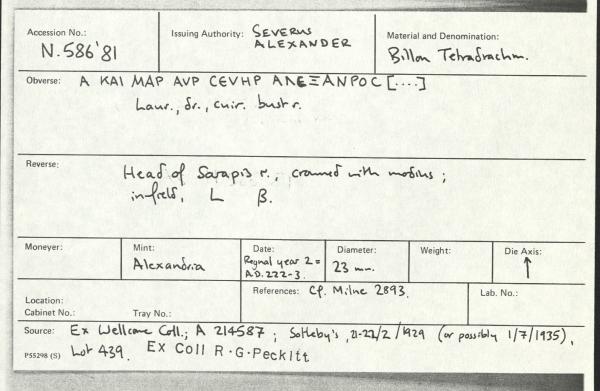 Accession No.:
N.586'81
Issuing Authority: SEVERUS
ALEXANDER
Material and Denomination:
Billon Tetradrachm.
Obverse: A KAI MAP AVP CEVHP ALEΞANPOC [....]
Laur., dr., cuir. bust r.
Reverse:
Head of Sarapis r., crowned with modius;
in field, L β.
Moneyer:
Mint:
Alexandria
Date:
Regnal year 2 =
A.D. 222-3.
Diameter:
23 mm.
Weight:
Die Axis:
↑
Location:
Cabinet No.:
Tray No.:
References: Cf. Milne 2893.
Lab. No.:
Source: Ex Wellcome Coll.; A 214587; Sotheby's, 21-22/2/1929 (or possibly 1/7/1935),
P55298 (S) Lot 439. Ex Coll R.G.Peckitt